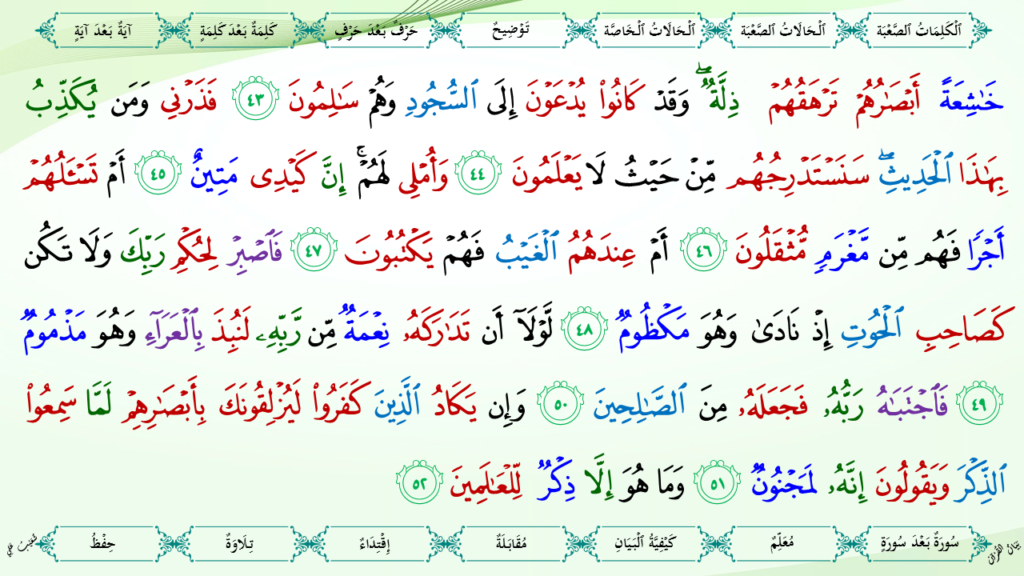 اَلْكَلِمَاتُ الصَّعْبَة اَلْحَالَاتُ الصَّعْبَة اَلْحَالَاتُ الْخَاصَّة تَوْضِيحٌ حَرْفٌ بَعْدَ حَرْفٍ كَلِمَةٌ بَعْدَ كَلِمَةٍ آيَةٌ بَعْدَ آيَةٍ
خَٰشِعَةً أَبۡصَٰرُهُمۡ تَرۡهَقُهُمۡ ذِلَّةٞۖ وَقَدۡ كَانُواْ يُدۡعَوۡنَ إِلَى ٱلسُّجُودِ وَهُمۡ سَٰلِمُونَ ٤٣ فَذَرۡنِي وَمَن يُكَذِّبُ
بِهَٰذَا ٱلۡحَدِيثِۖ سَنَسۡتَدۡرِجُهُم مِّنۡ حَيۡثُ لَا يَعۡلَمُونَ ٤٤ وَأُمۡلِي لَهُمۡۚ إِنَّ كَيۡدِي مَتِينٌ ٤٥ أَمۡ تَسۡـَٔلُهُمۡ
أَجۡرٗا فَهُم مِّن مَّغۡرَمٖ مُّثۡقَلُونَ ٤٦ أَمۡ عِندَهُمُ ٱلۡغَيۡبُ فَهُمۡ يَكۡتُبُونَ ٤٧ فَٱصۡبِرۡ لِحُكۡمِ رَبِّكَ وَلَا تَكُن
كَصَاحِبِ ٱلۡحُوتِ إِذۡ نَادَىٰ وَهُوَ مَكۡظُومٞ ٤٨ لَّوۡلَآ أَن تَدَٰرَكَهُۥ نِعۡمَةٞ مِّن رَّبِّهِۦ لَنُبِذَ بِٱلۡعَرَآءِ وَهُوَ مَذۡمُومٞ
٤٩ فَٱجۡتَبَٰهُ رَبُّهُۥ فَجَعَلَهُۥ مِنَ ٱلصَّٰلِحِينَ ٥٠ وَإِن يَكَادُ ٱلَّذِينَ كَفَرُواْ لَيُزۡلِقُونَكَ بِأَبۡصَٰرِهِمۡ لَمَّا سَمِعُواْ
ٱلذِّكۡرَ وَيَقُولُونَ إِنَّهُۥ لَمَجۡنُونٞ ٥١ وَمَا هُوَ إِلَّا ذِكۡرٞ لِّلۡعَٰلَمِينَ ٥٢
سُورَةٌ بَعْدَ سُورَةٍ مُعَلِّمٌ كَيْفِيَّةُ الْبَيَانِ مُقَابَلَةٌ إِقْتِدَاءٌ تِلَاوَةٌ حِفْظٌ
بَيَانُ الْقُرْآنِ